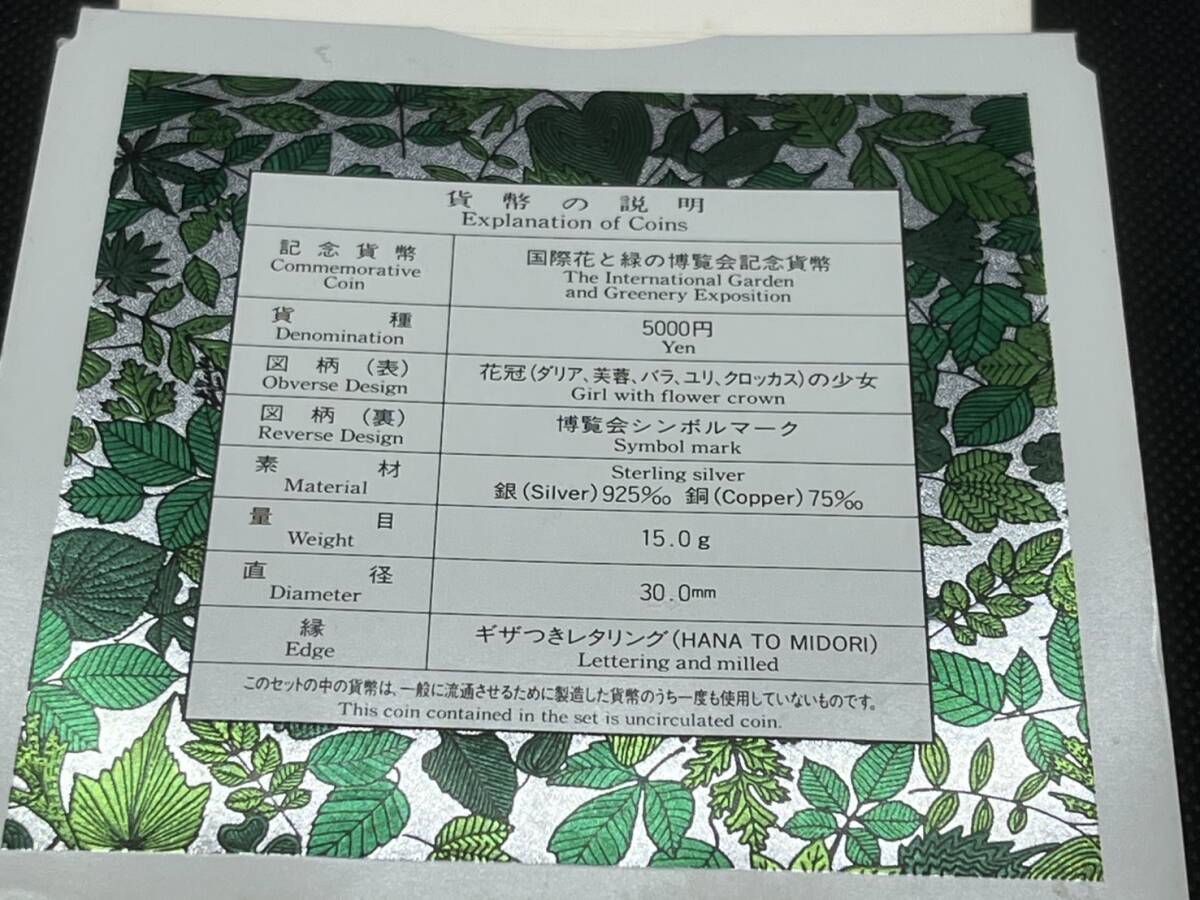 貨幣の説明
Explanation of Coins
記念貨幣
Commemorative
Coin
国際花と緑の博覧会記念貨幣
The International Garden
and Greenery Exposition
貨種
Denomination
5000円
Yen
図柄(表)
Obverse Design
花冠(ダリア、芙蓉、バラ、ユリ、クロッカス)の少女
Girl with flower crown
図柄(裏)
Reverse Design
博覧会シンボルマーク
Symbol mark
素材
Material
Sterling silver
銀(Silver)925‰ 銅(Copper)75‰
量目
Weight
15.0g
直径
Diameter
30.0mm
縁
Edge
ギザつきレタリング(HANA TO MIDORI)
Lettering and milled
このセットの中の貨幣は、一般に流通させるために製造した貨幣のうち一度も使用していないものです。
This coin contained in the set is uncirculated coin.